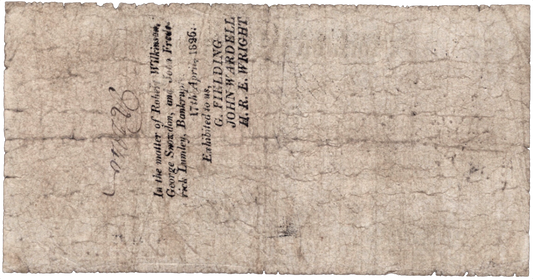 In the matter of Robert Wilkinson,
George Snowdon, and John Frede-
rick Lumley, Bankrup
17th April, 1826.
Exhibited to us,
G. FIELDING
JOHN WARDELL
H. R. E. WRIGHT